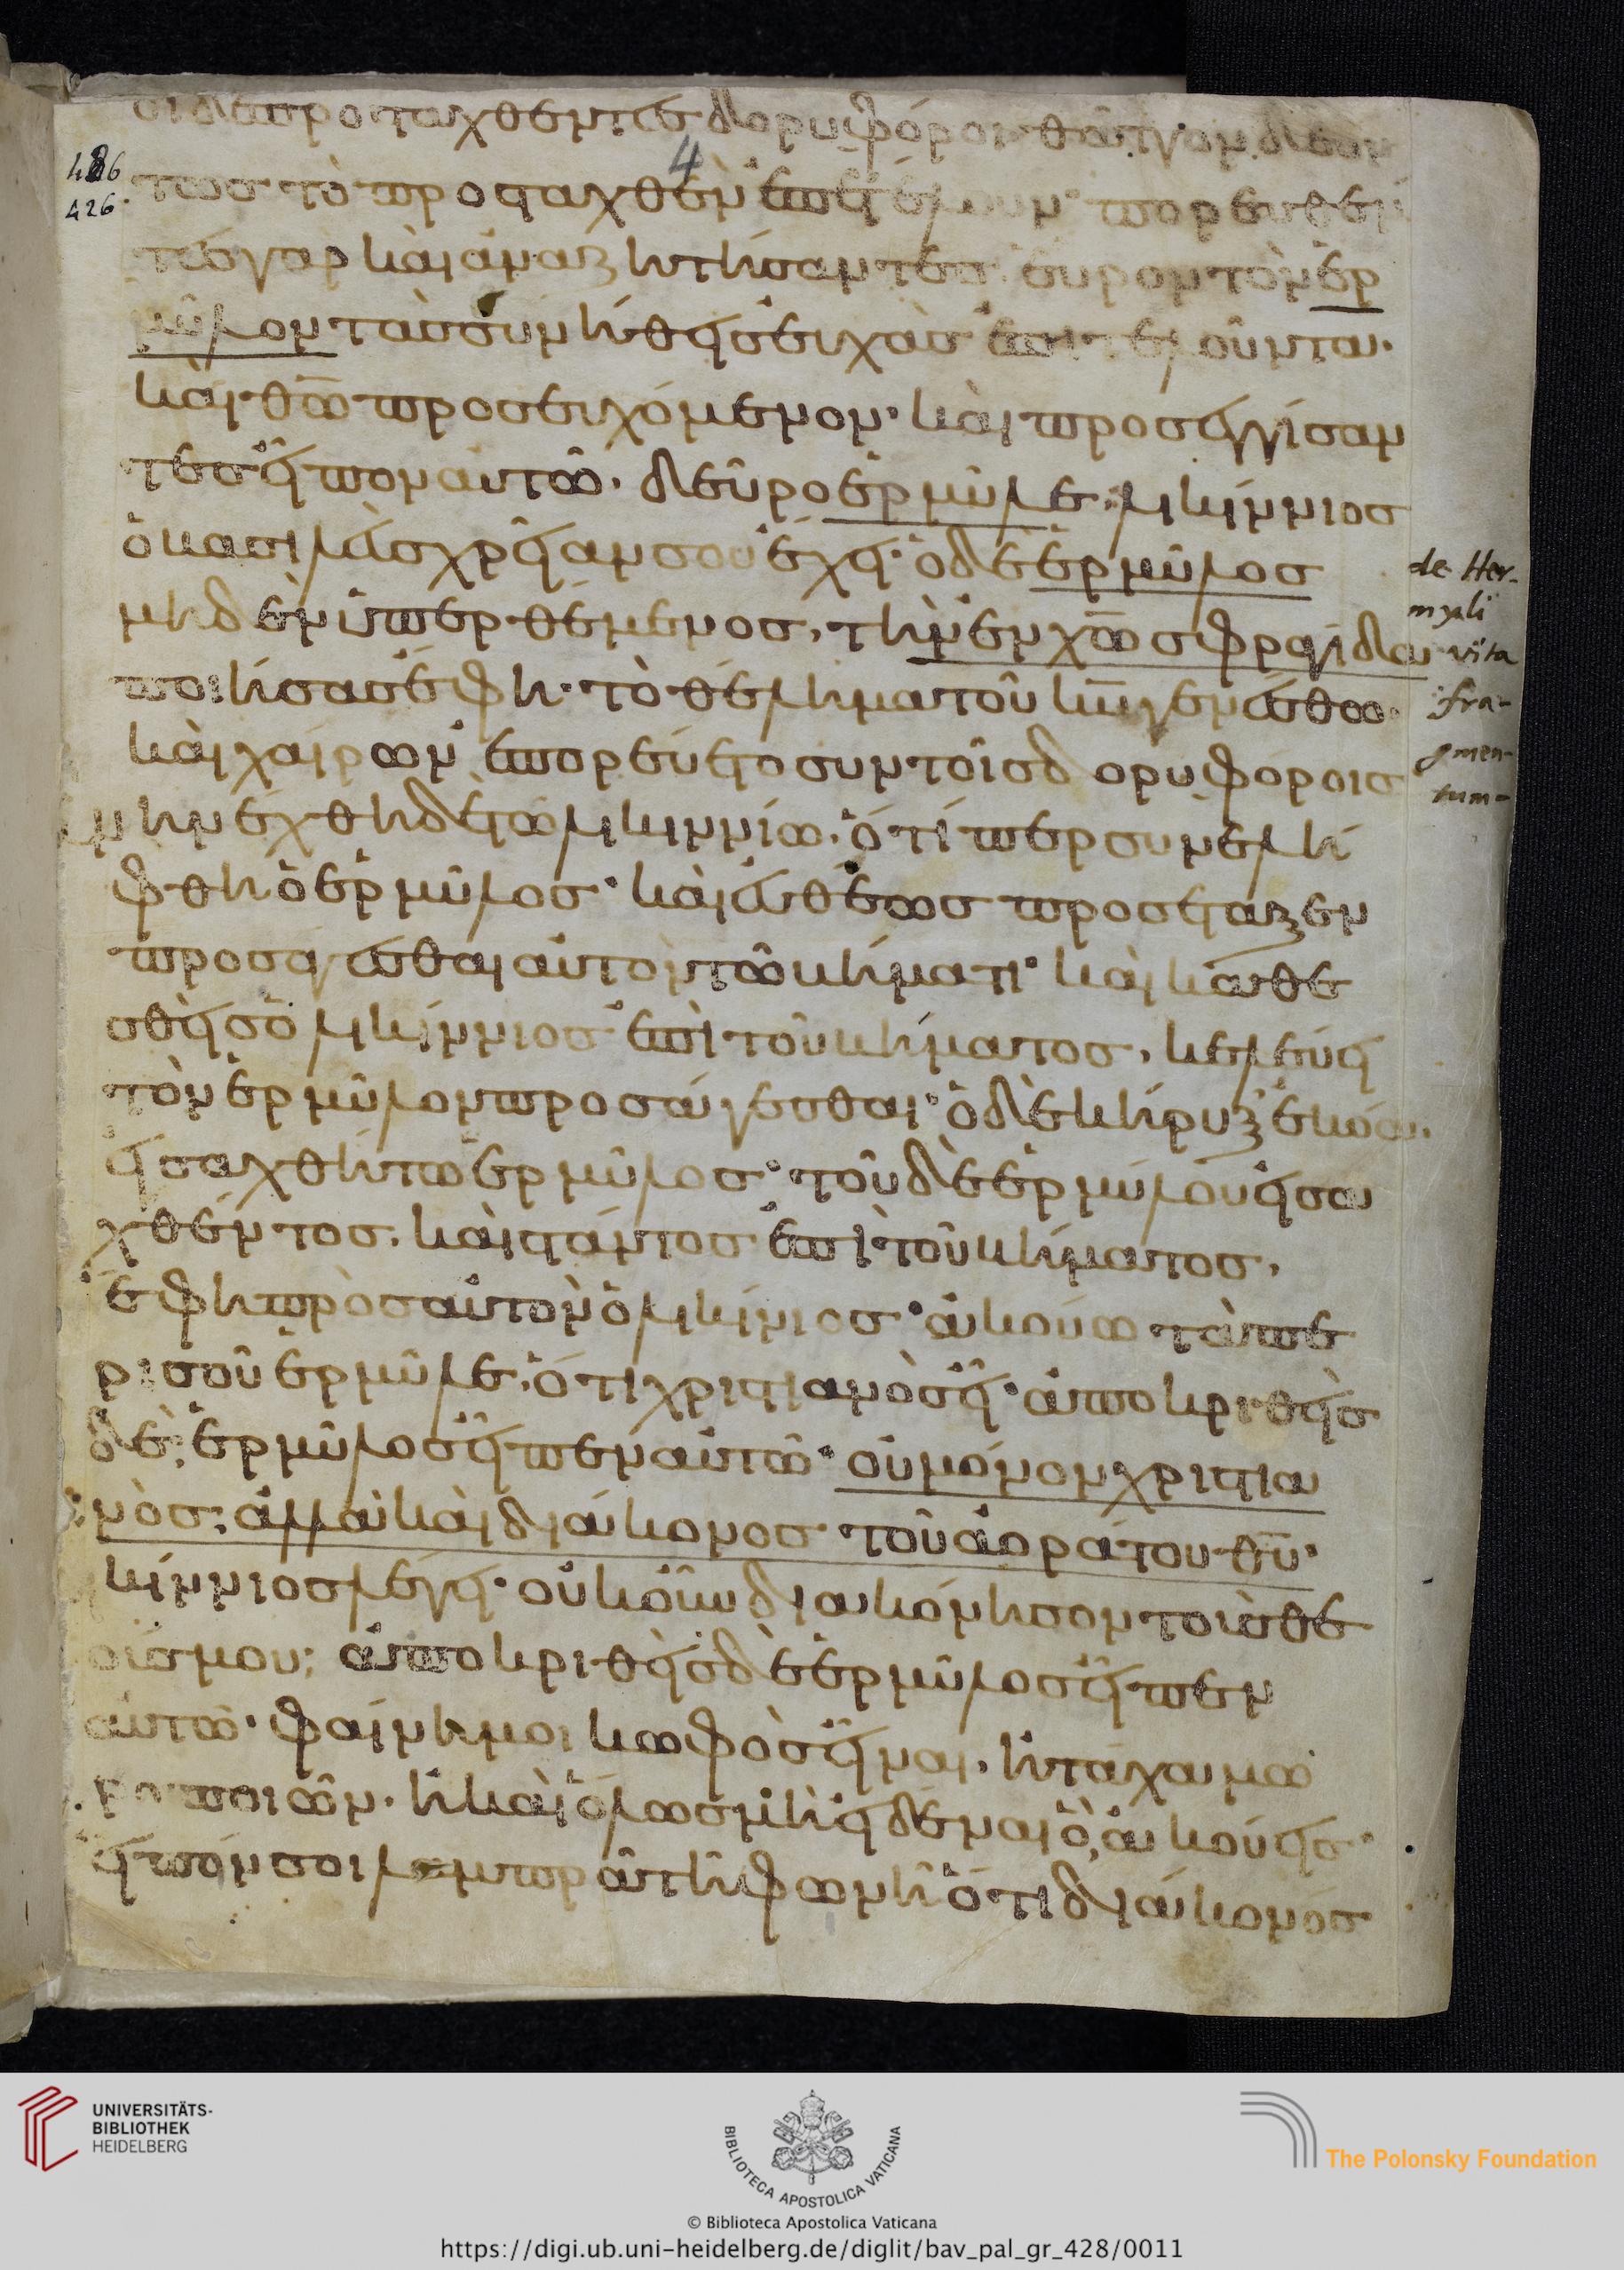 οι δε προταχθέντες δορυφόροι θᾶττον
4
486
426.
τωσ τὸ προσταχθὲν ἐπετέλουν· πορευθέν
τεσ γαρ καὶ ἀναζητήσαντεσ· εὗρον τὸν ἑρ
μύλον τὰσ συνήθεισ εὐχὰσ ἐπιτελοῦντα·
καὶ θω̅ προσευχόμενον· καὶ προσεγγίσαν
τεσ εἶπον αὐτῶ· δεῦρο ἑρμύλε, λικίννιοσ
ὁ βασιλεὺσ χρείαν σου ἔχει· ὁ δὲ ἑρμύλοσ
μηδὲν ὑπερθέμενοσ, τὴν ἐν χω̅ σφραγίδα
ποιήσασ ἔφη· τὸ θέλημα τοῦ κυ̅ γενέσθω·
καὶ χαίρων ἐπορεύετο συν τοῖσ δορυφόροισ
μηνέχθη δὲ τῶ λικιννίω· ὅτί περ συνελή
φθη ὁ ἑρμύλοσ· καὶ εὐθέωσ προσέταξεν
προσάγεσθαι αὐτον τῶ βήματι· καὶ καθε
σθεὶσ ὁ λικίννιοσ ἐπὶ τοῦ βήματοσ, κελεύει
τὸν ἑρμύλον προσάγεσθαι· ὁ δὲ κήρυξ ἐβόα·
εἰσαχθήτω ἑρμύλοσ· τοῦ δὲ ἑρμύλου εἰσα
χθέντοσ· καὶ στάντοσ ἐπὶ τοῦ βήματοσ,
ἔφη πρὸσ αὐτον ὁ λικίνιοσ· ἀκούω τὰ πε
ρι σοῦ ἑρμύλε, ὅτι χριστιανὸσ εἶ· ἀποκριθεὶσ
δὲ, ἑρμύλοσ εἶπεν αὐτῶ· οὐ μόνον χριστια
νὸσ· ἀλλὰ καὶ διάκονοσ τοῦ ἀοράτου θυ̅·
κίννιοσ λέγει· οὐκοῦν διακόνησον τοῖσ θε
οῖσ μου; ἀποκριθεὶσ δὲ ἑρμύλοσ εἶπεν
αὐτῶ· φαίνη μοι κωφὸσ εἶναι, ἢ τάχα μω
ρο ποιῶν· ἢ καὶ ὅλωσ μὴ εἰδέναι ὃ ἀκούεισ·
εἰπόν σοι λαμπρᾶ τῆ φωνῆ ὅτι διάκονόσ
de Her-
myli
vita
fra-
gmen-
tum-
UNIVERSITÄTS-
BIBLIOTHEK
HEIDELBERG
BIBLIOTECA APOSTOLICA VATICANA
The Polonsky Foundation
© Biblioteca Apostolica Vaticana
https://digi.ub.uni-heidelberg.de/diglit/bav_pal_gr_428/0011